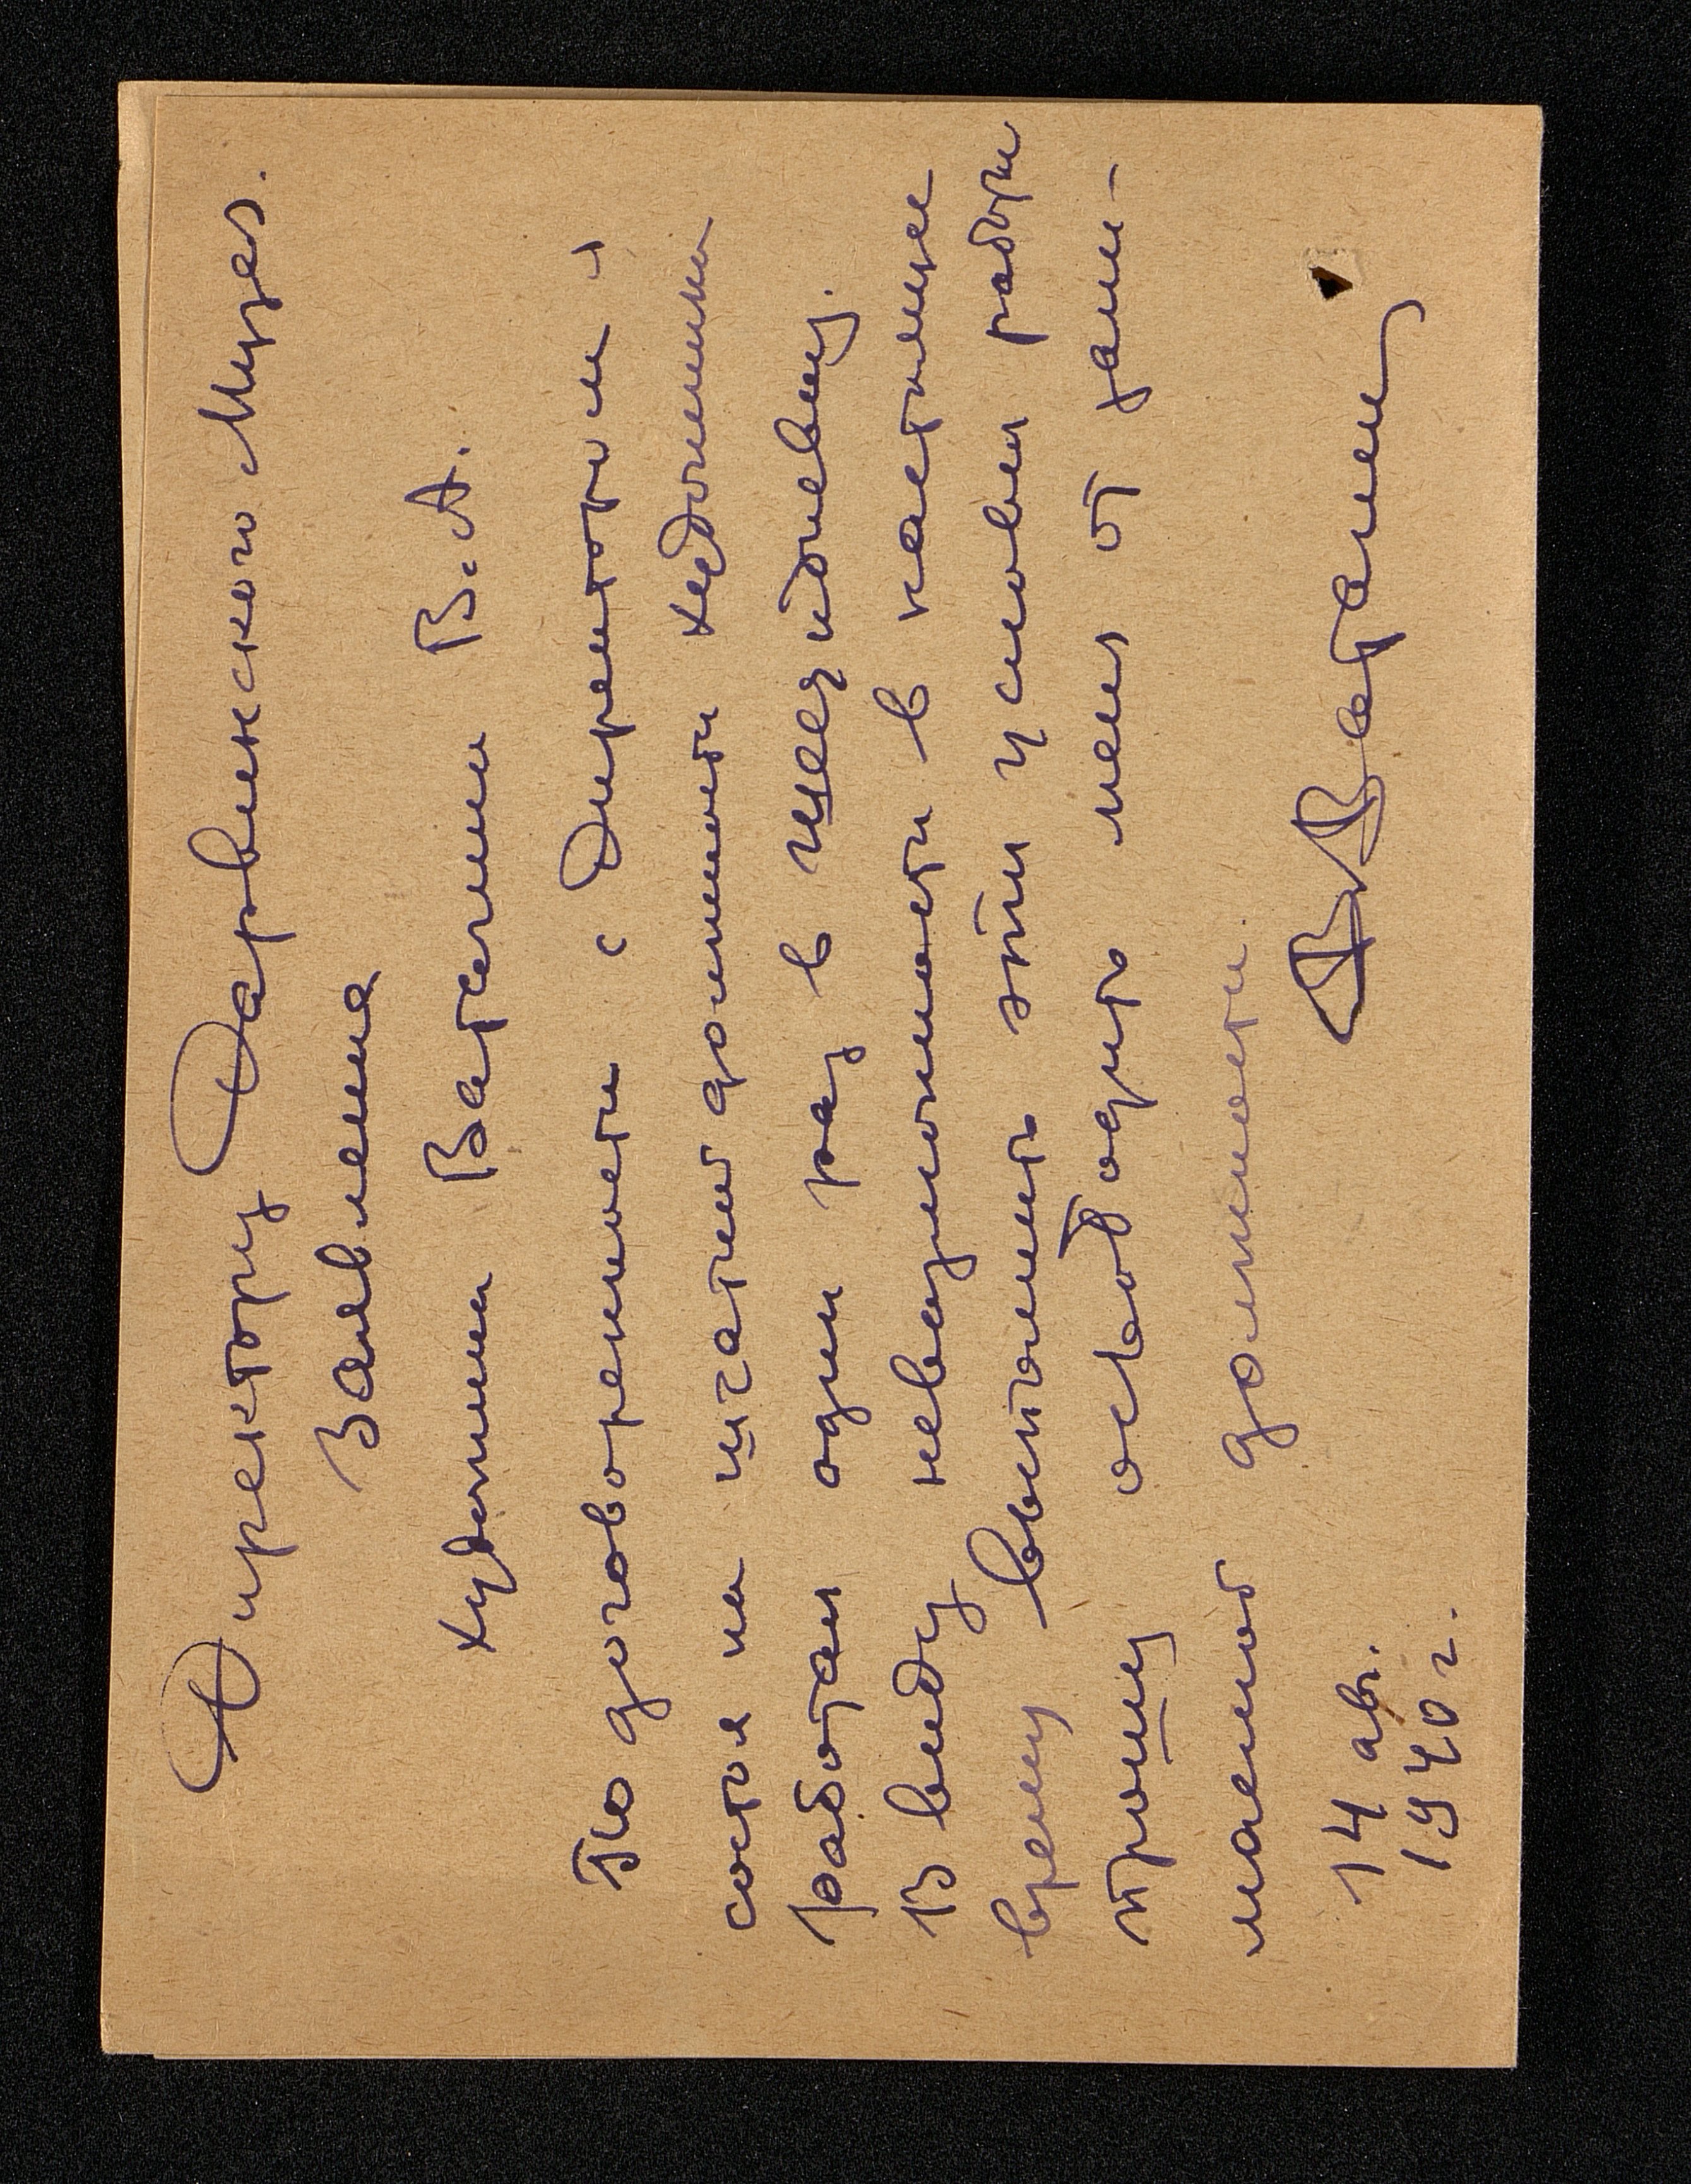 Директору Дарвинского Музея.
Заявление
художника Ватагина В. А.
По договоренности с директором я
состоя на штатной должности художника
работал один раз в шестидневку.
В виду невозможности в настоящее
время выполнить эти условия работы
прошу освободить меня от зани-
маемой должности.
14 авг.
1940 г.
В Ватагин